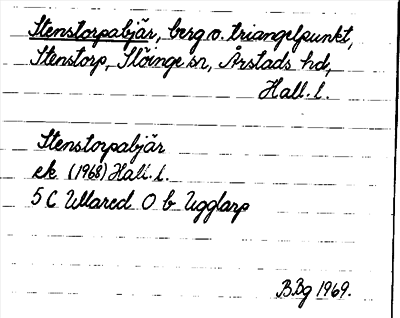 Stenstorpabjär, berg o. triangelpunkt,
Stenstorp, Slöinge sn, Årstads hd,
Hall. l.
Stenstorpabjär
ek (1968) Hall. l.
5 C Ullared O b Ugglarp
B.Bg 1969.